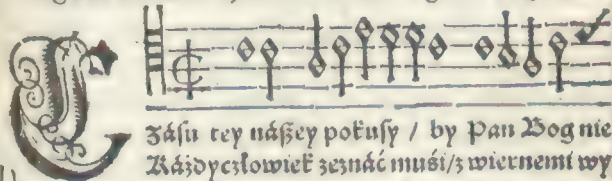 Czásu tey nászey pokusy / by Pan Bog nie
Káżdy człowiek zeznáć muśi / z wiernemi wy